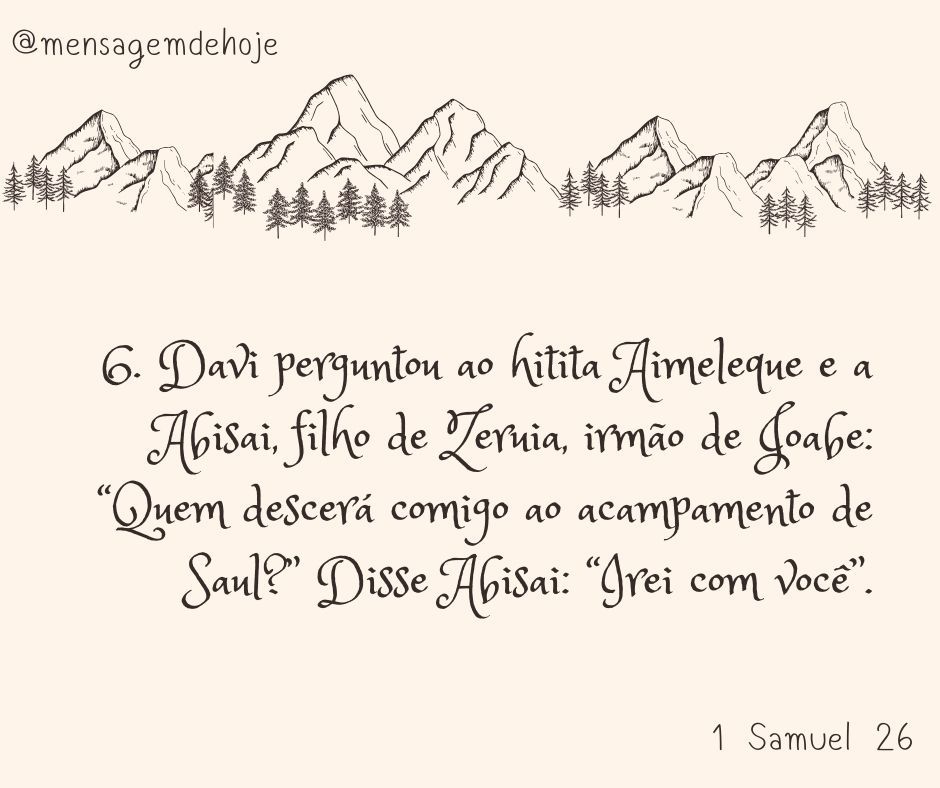 @mensagemdehoje
6. Davi perguntou ao hitita Aimeleque e a
Abisai, filho de Zeruia, irmão de Joabe:
“Quem descerá comigo ao acampamento de
Saul?” Disse Abisai: “Irei com você”.
1 Samuel 26